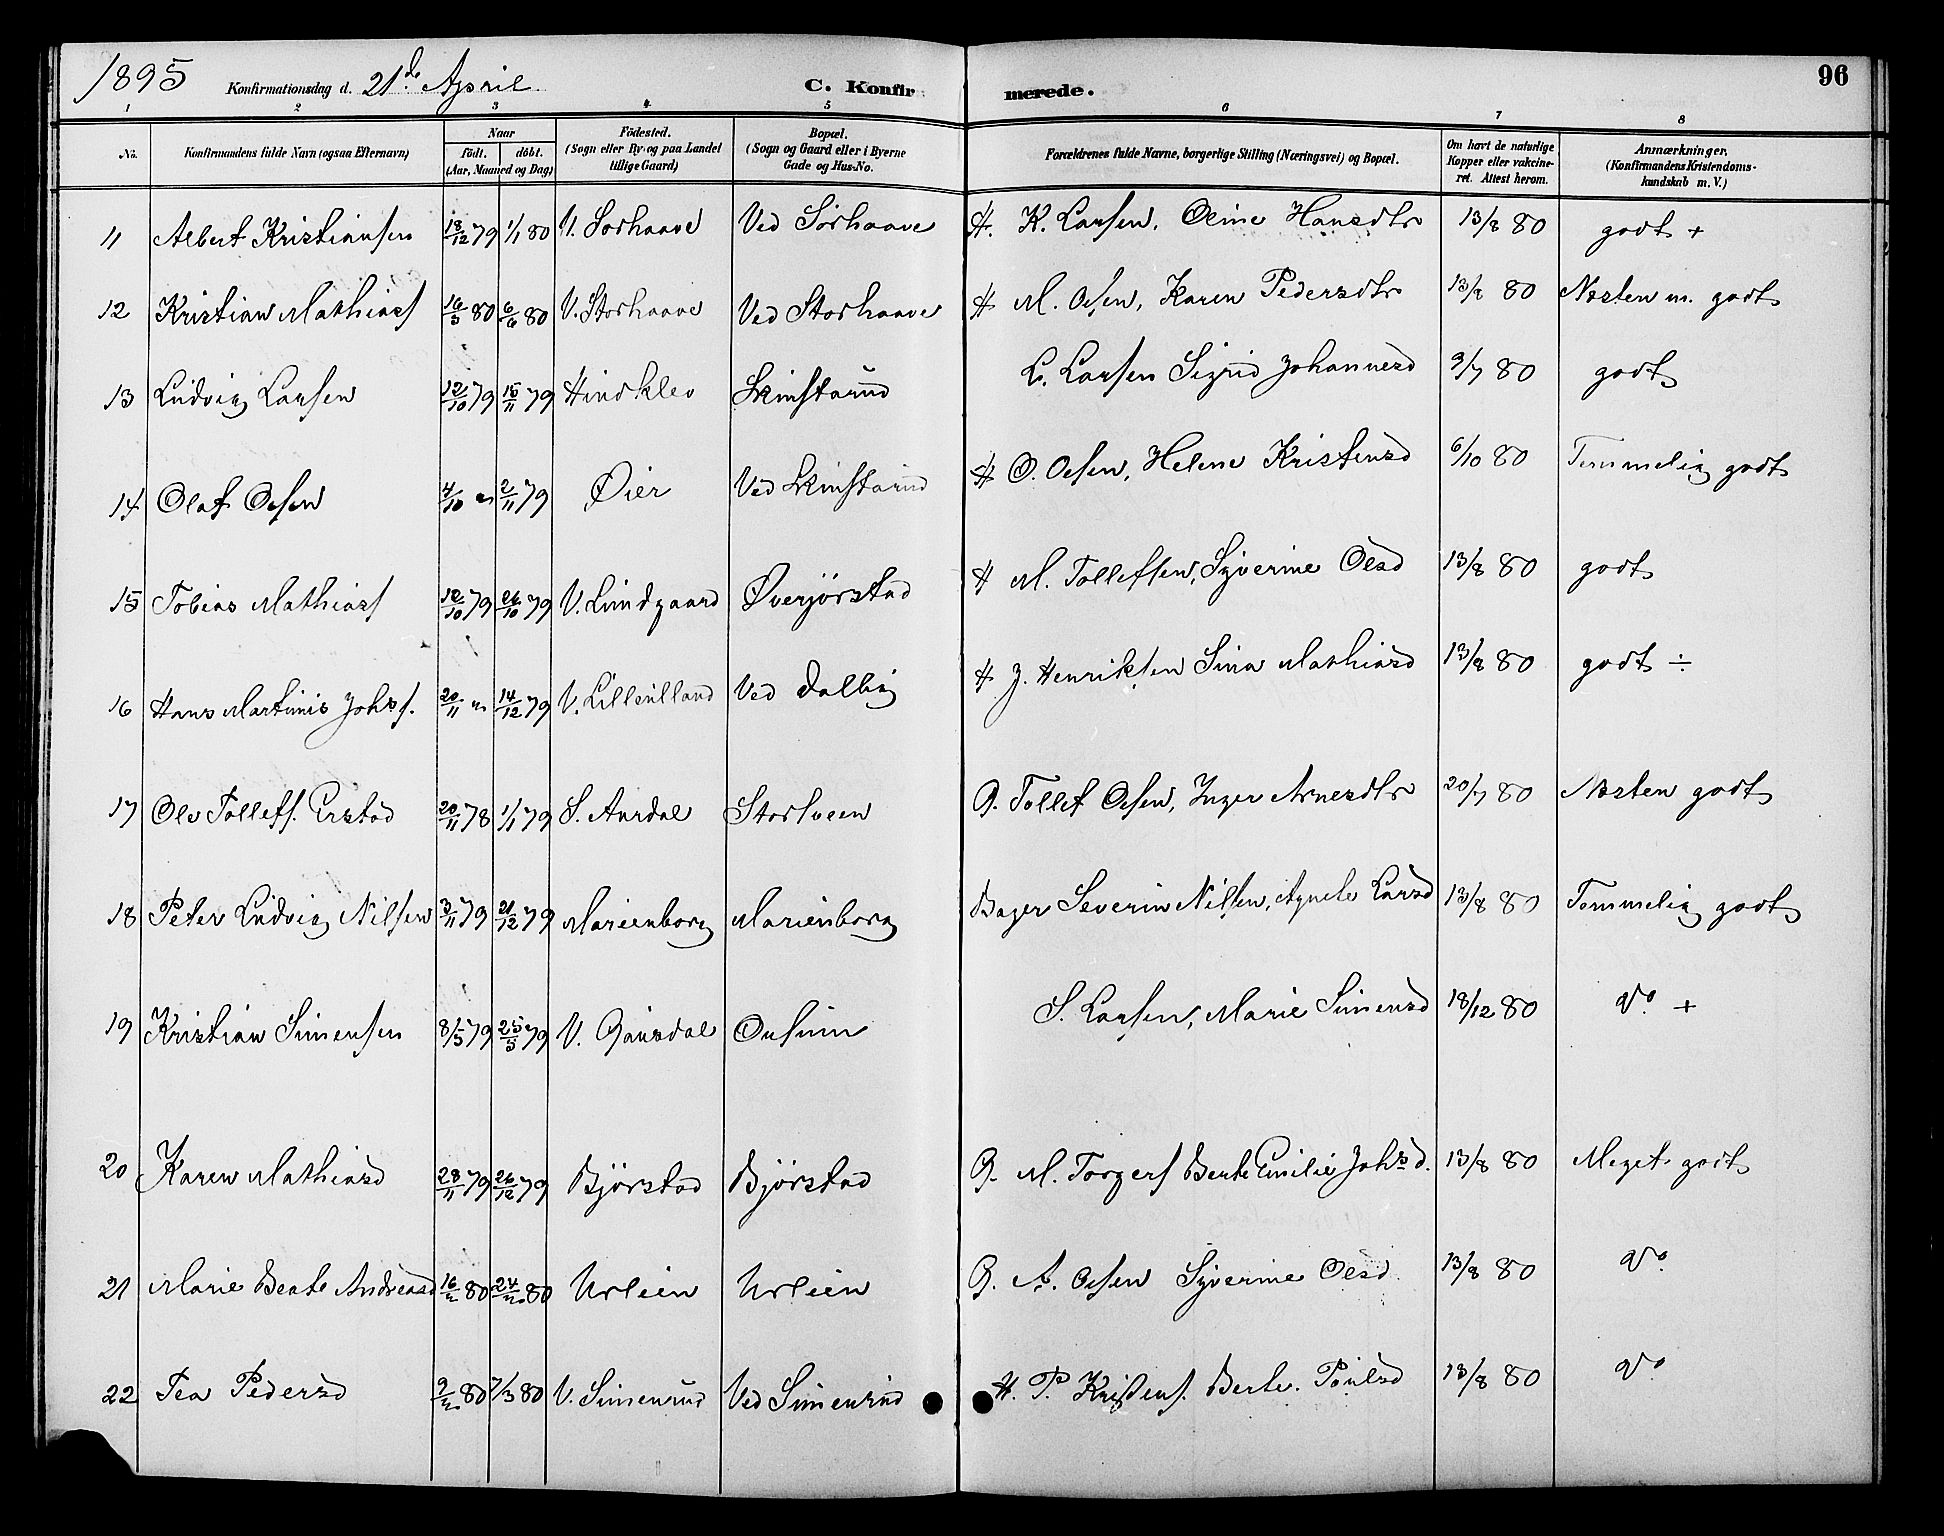 1895 Konfirmationsdag d. 21de April C. Konfirmerede. 96
1 2 3 4 5 6 7 8
No. Konfirmandens fulde Navn (ogsaa Efternavn) Naar født. døbt. (Aar, Maaned og Dag) Fødested. (Sogn eller By og paa Landet tillige Gaard) Bopæl. (Sogn og Gaard eller i Byerne Gade og Hus-No. Forældrenes fulde Navne, borgerlige Stilling (Næringsvei) og Bopæl. Om havt de naturlige Kopper eller vakcineret. Attest herom. Anmærkninger, (Konfirmandens Kristendomskundskab m. V.)
11 Albert Kristiansen 18/12 79 1/1 80 V. Sorhaave Ved Sorhaave H. K. Larsen, Oline Hansdtr 13/8 80 godt +
12 Kristian Mathiass 16/5 80 6/6 80 V. Storhaave Ved Storhaave H M. Olsen, Karen Pedersdtr 13/8 80 Næsten m. godt
13 Ludvig Larsen 12/10 79 15/11 79 Hindklev Skinstarud L. Larsen Sigrid Johannesd 9/7 80 godt
14 Olaf Olsen 4/10 " 2/11 79 Øier Ved Skinstarud H O. Olsen, Helene Kristensd 6/10 80 Temmelig godt
15 Tobias Mathiass 12/10 79 26/10 79 V. Lundgaard Øverjørstad H M. Tollefsen, Syverine Olsd 13/8 80 godt
16 Hans Martinis Johss. 20/11 " 14/12 79 V. Lilleulland Ved Dalbig H J. Henriksen Sina Mathiasd 13/8 80 godt ÷
17 Ole Tollefs. Erstad 20/11 78 1/1 79 S. Aurdal Storsveen G. Tollef Olsen, Inger Arnesdtr 20/7 80 Næsten godt
18 Peter Ludvig Nilsen 3/11 79 21/12 79 Marienborg Marienborg Bager Severin Nilsen, Agnete Larsd 13/8 80 Temmelig godt
19 Kristian Simensen 8/5 79 25/5 79 V. Gausdal Onsum S. Larsen, Marie Simensd 18/12 80 Do +
20 Karen Mathiasd 28/11 79 26/12 79 Bjørstad Bjørstad G. M. Torgers Berte Emilie Johsd. 13/8 80 Meget godt
21 Marie Berte Andreasd 16/2 80 24/2 80 Urleien Urleien G. A. Olsen Syverine Olsd 13/8 80 Do
22 Tea Pedersd 9/2 80 7/3 80 V. Simenrud Ved Simenrud H. P. Kristens. Berte. Poulsd 13/8 80 Do